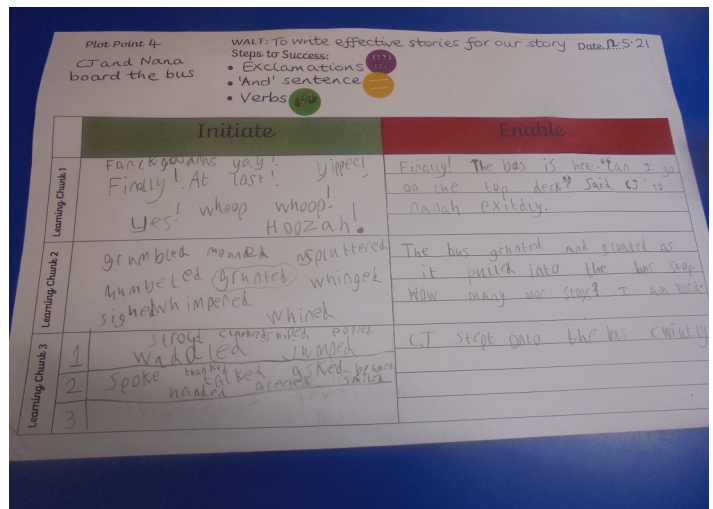 Plot Point 4
CJ and Nana
board the bus
WALT: To write effective stories for our story Date 12.5.21
Steps to Success:
• Exclamations
• 'And' sentence
• Verbs
Initiate Enable
Learning Chunk 1
yay! Yippee!
Finally! At last!
Yes! whoop whoop!
Hoozah!
Finally! The bus is hee. "Can I go
on the top deck" Said CJ to
nanah exitdly.
Learning Chunk 2
grumbled moaned spluttered
mumbeled grunted whinged
sighed whimpered
whined
The bus grunted and groaned as
it pulled into the bus stop
How many mor stops? I am
Learning Chunk 3
1
popped
waddled jumped
2
spoke thanked talked asked beamed
handed greeted smiled
3
CJ stept onto the bus